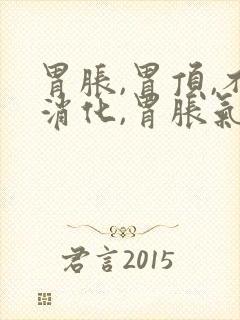 胃脹,胃頂,不
消化,胃脹氣
君言2015